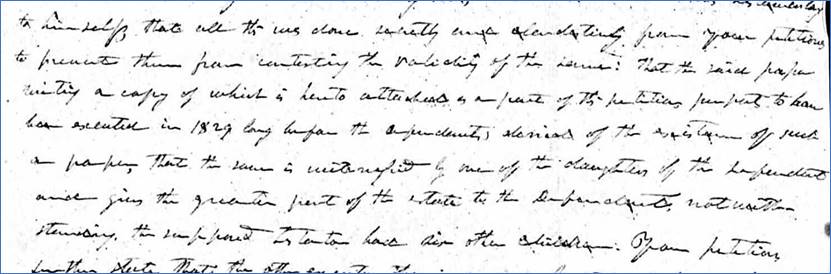 to himself, that all this was done secretly and clandestinely from your petitions
to prevent them from contesting the validity of the same: that the said paper
writing a copy of which is hereto attached as a part of this petition purports to have
been executed in 1829 long before the defendants, denial of the existence of such
a paper, that the same is witnessed by one of the daughters of the defendant
and gives the greater part of the estate to the Defendants, notwith-
standing, the supposed testator had six other children. Your petitions
further state that the other